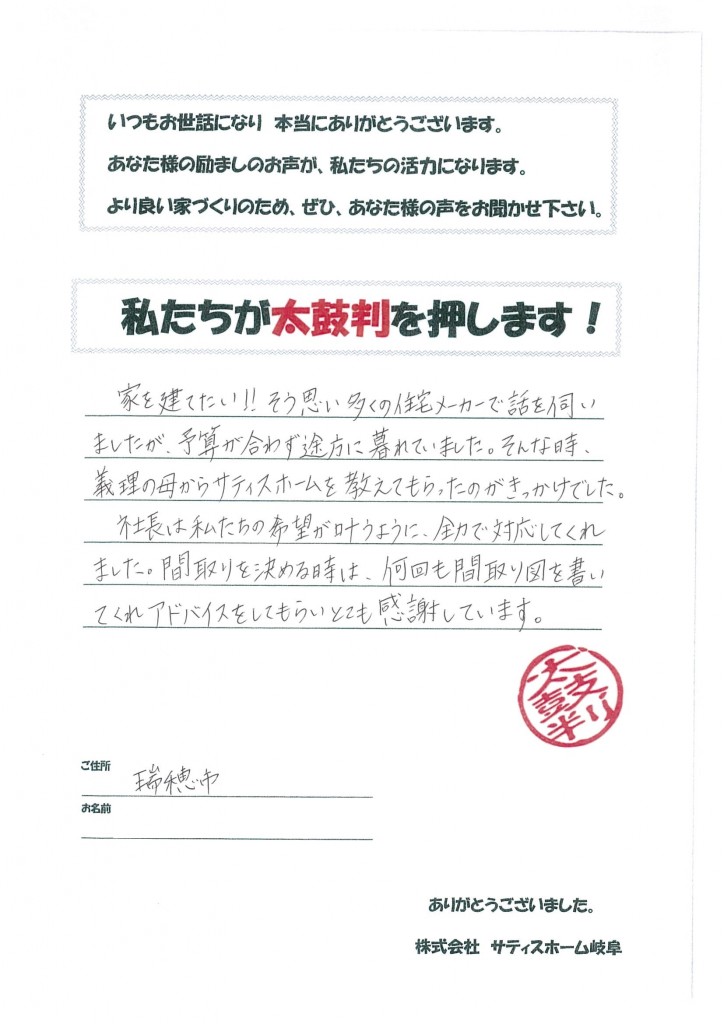 いつもお世話になり 本当にありがとうございます。
あなた様の励ましのお声が、私たちの活力になります。
より良い家づくりのため、ぜひ、あなた様の声をお聞かせ下さい。
私たちが太鼓判を押します！
家を建てたい!! そう思い多くの住宅メーカーで話を伺い
ましたが、予算が合わず途方に暮れていました。そんな時、
義理の母からサティスホームを教えてもらったのがきっかけでした。
社長は私たちの希望が叶うように、全力で対応してくれ
ました。間取りを決める時は、何回も間取り図を書い
てくれアドバイスをしてもらいとても感謝しています。
太鼓判
ご住所 瑞穂市
お名前
ありがとうございました。
株式会社 サティスホーム岐阜